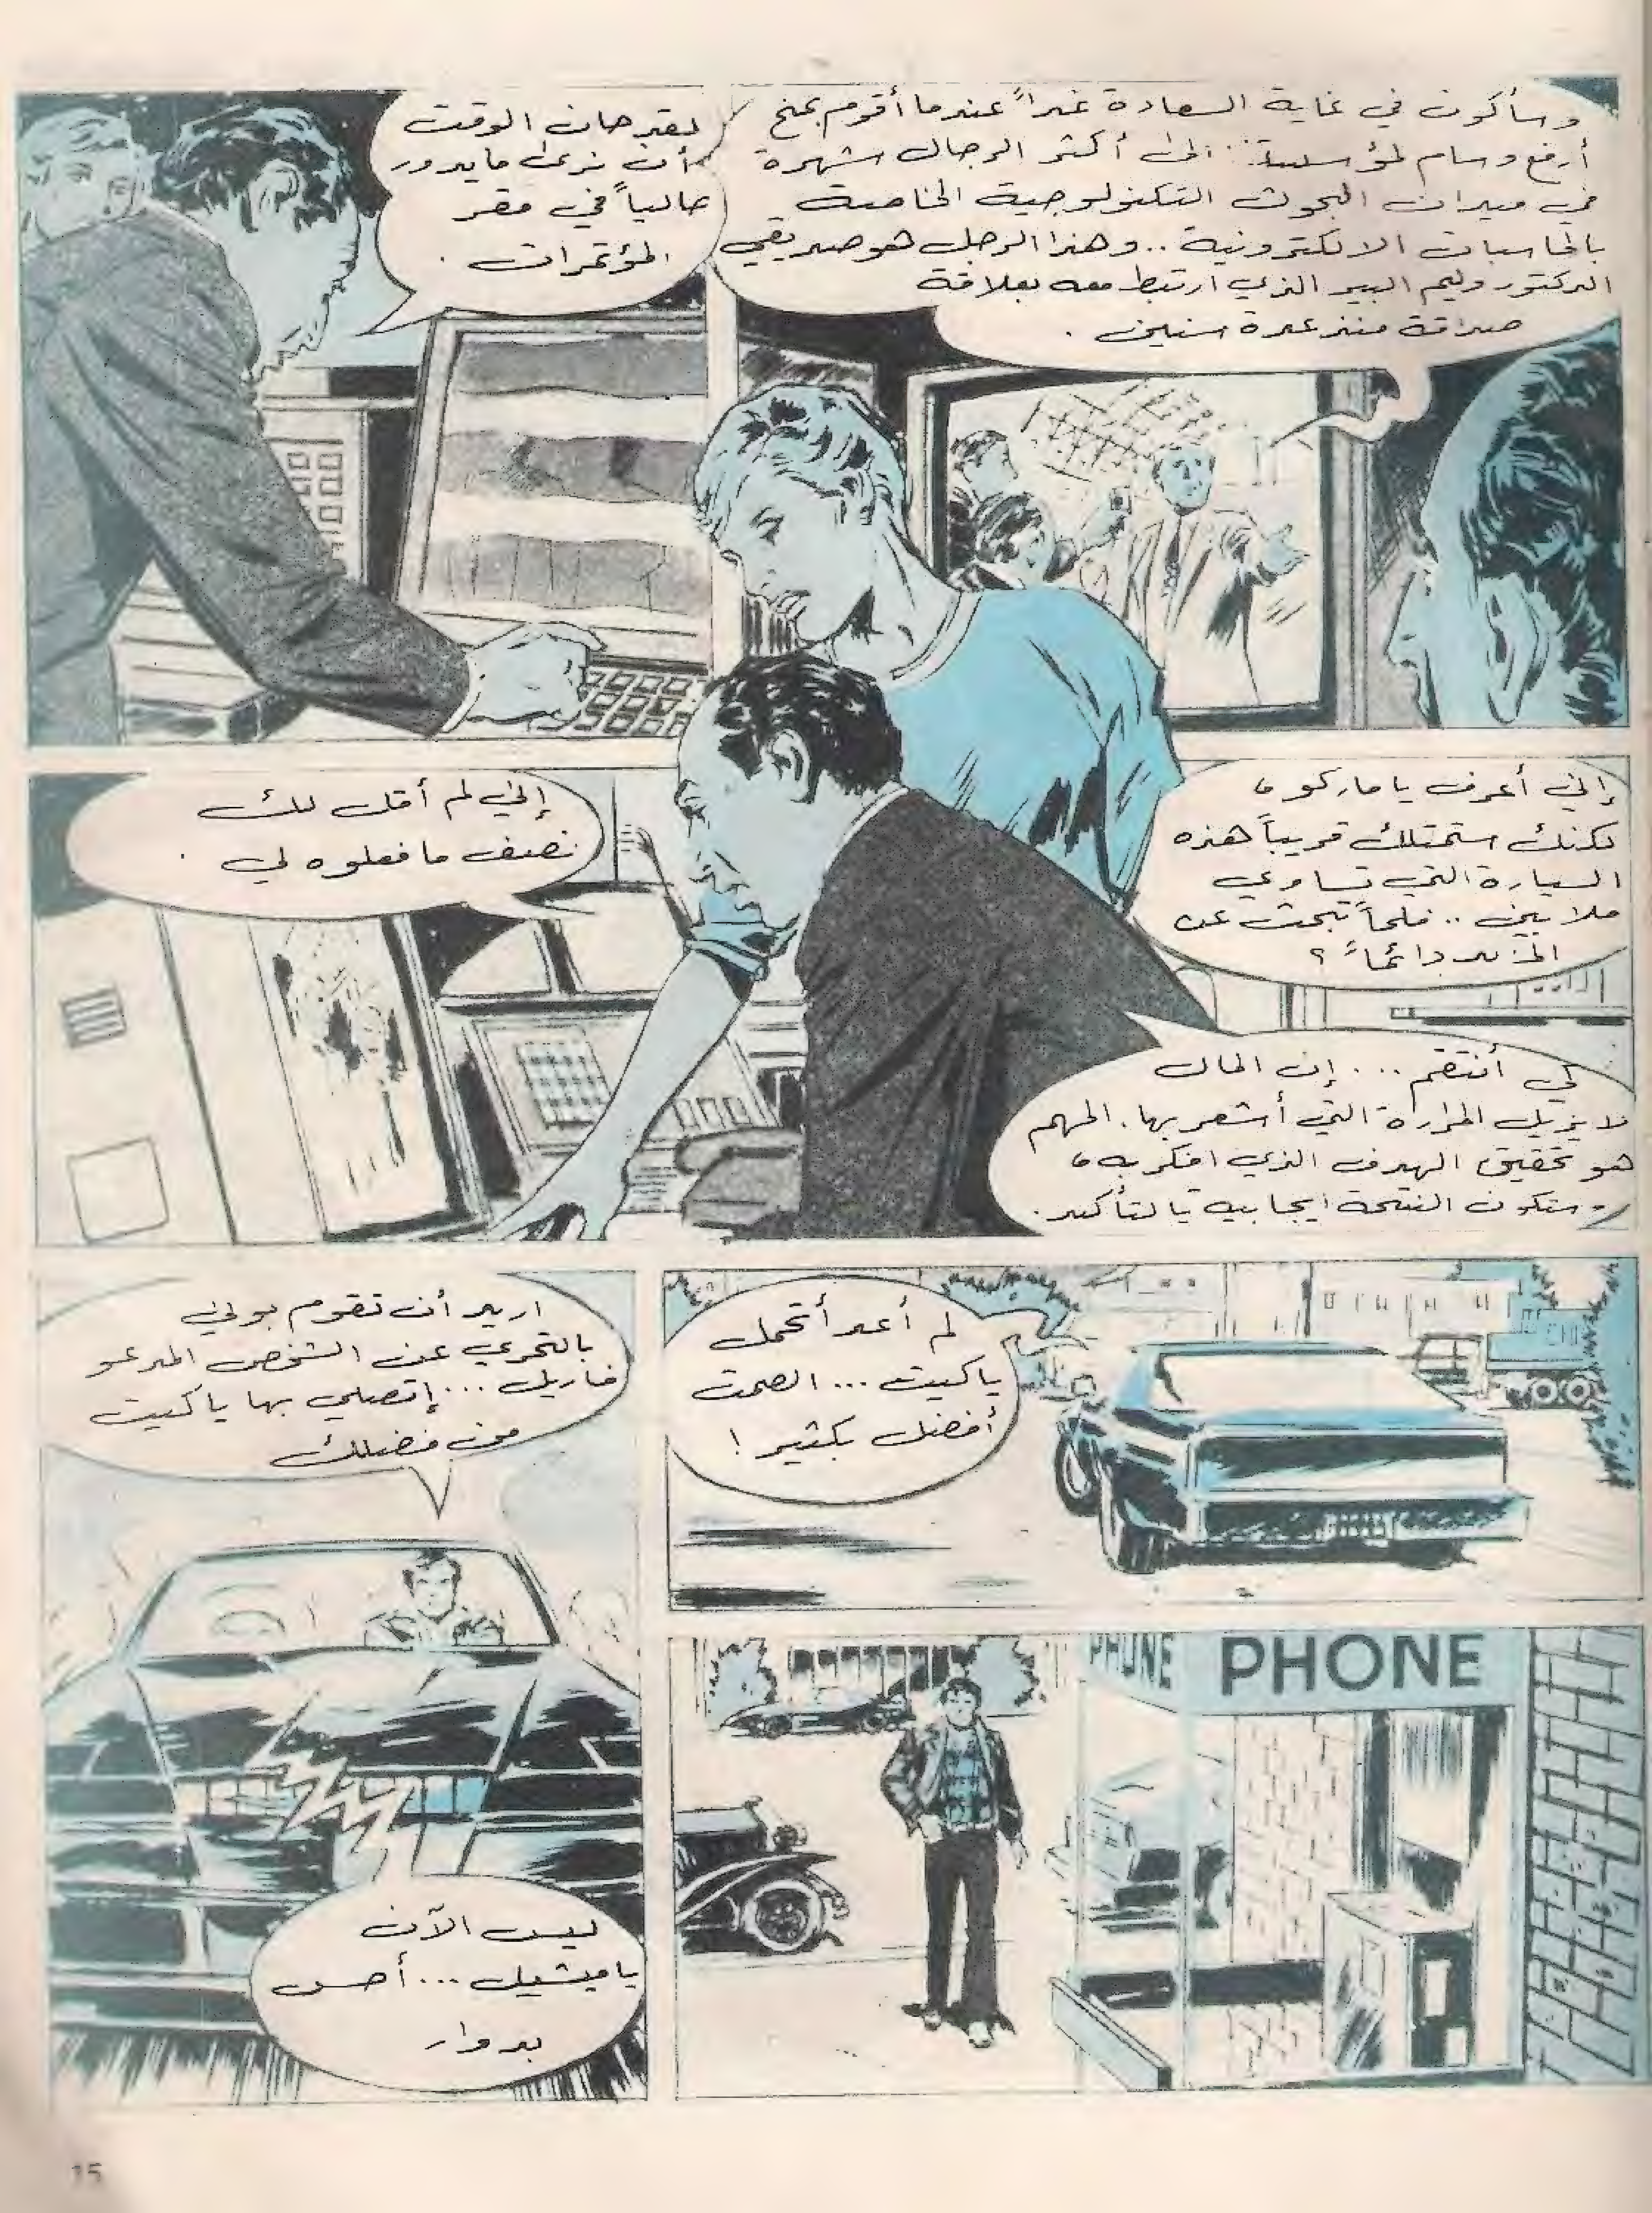 وسأكون في غاية السعادة غداً عندما أقوم بمنح
أرفع وسام لمؤسستنا.. الى أكثر الرجال شهرة
في ميدان البحوث التكنولوجية الخاصة
بالحاسبات الالكترونية .. وهذا الرجل هو صديقي
الدكتور وليم البير الذي ارتبط معه بعلاقة
صداقة منذ عدة سنين .
لقد حان الوقت
أن نرى ما يدور
حالياً في مقر
المؤتمرات .
إني أعرف يا ماركو ،
لكنك ستمتلك قريباً هذه
السيارة التي تساوي
ملايين .. فلماذا تبحث عن
المزيد دائماً ؟
إني لم أقل لك
نصف ما فعلوه لي .
كي أنتقم ... إن المال
لا يزيل المرارة التي أشعر بها . المهم
هو تحقيق الهدف الذي افكر به ،
وستكون النتيجة ايجابية بالتأكيد .
لم أعد أتحمل
يا كيت ... الصمت
أفضل بكثير !
اريد أن تقوم بوني
بالتحري عن الشخص المدعو
فاريل ... إتصلي بها يا كيت
من فضلك
ليس الآن
يا ميشيل ... أحس
بدوار
PHONE
PHONE
15